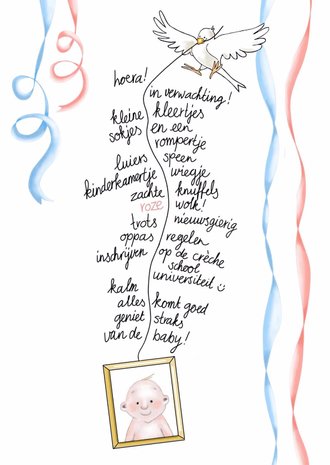 hoera!
in verwachting!
kleine kleertjes
sokjes en een
rompertje
luiers speen
kinderkamertje wiegje
zachte knuffels
roze wolk!
trots nieuwsgierig
oppas regelen
inschrijven op de crèche
school
universiteit
kalm
alles komt goed
geniet straks
van de baby!